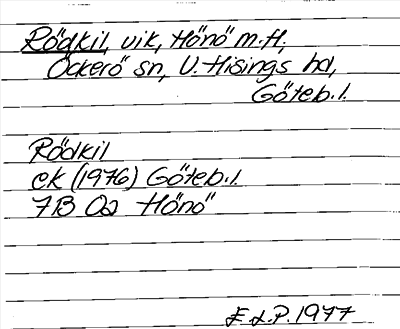 Rödkil, vik, Hönö m.fl,
Öckerö sn, V. Hisings hd,
Göteb. l.
Rödkil
ek (1976) Göteb. l.
7B 0a Hönö
E.L.P. 1977